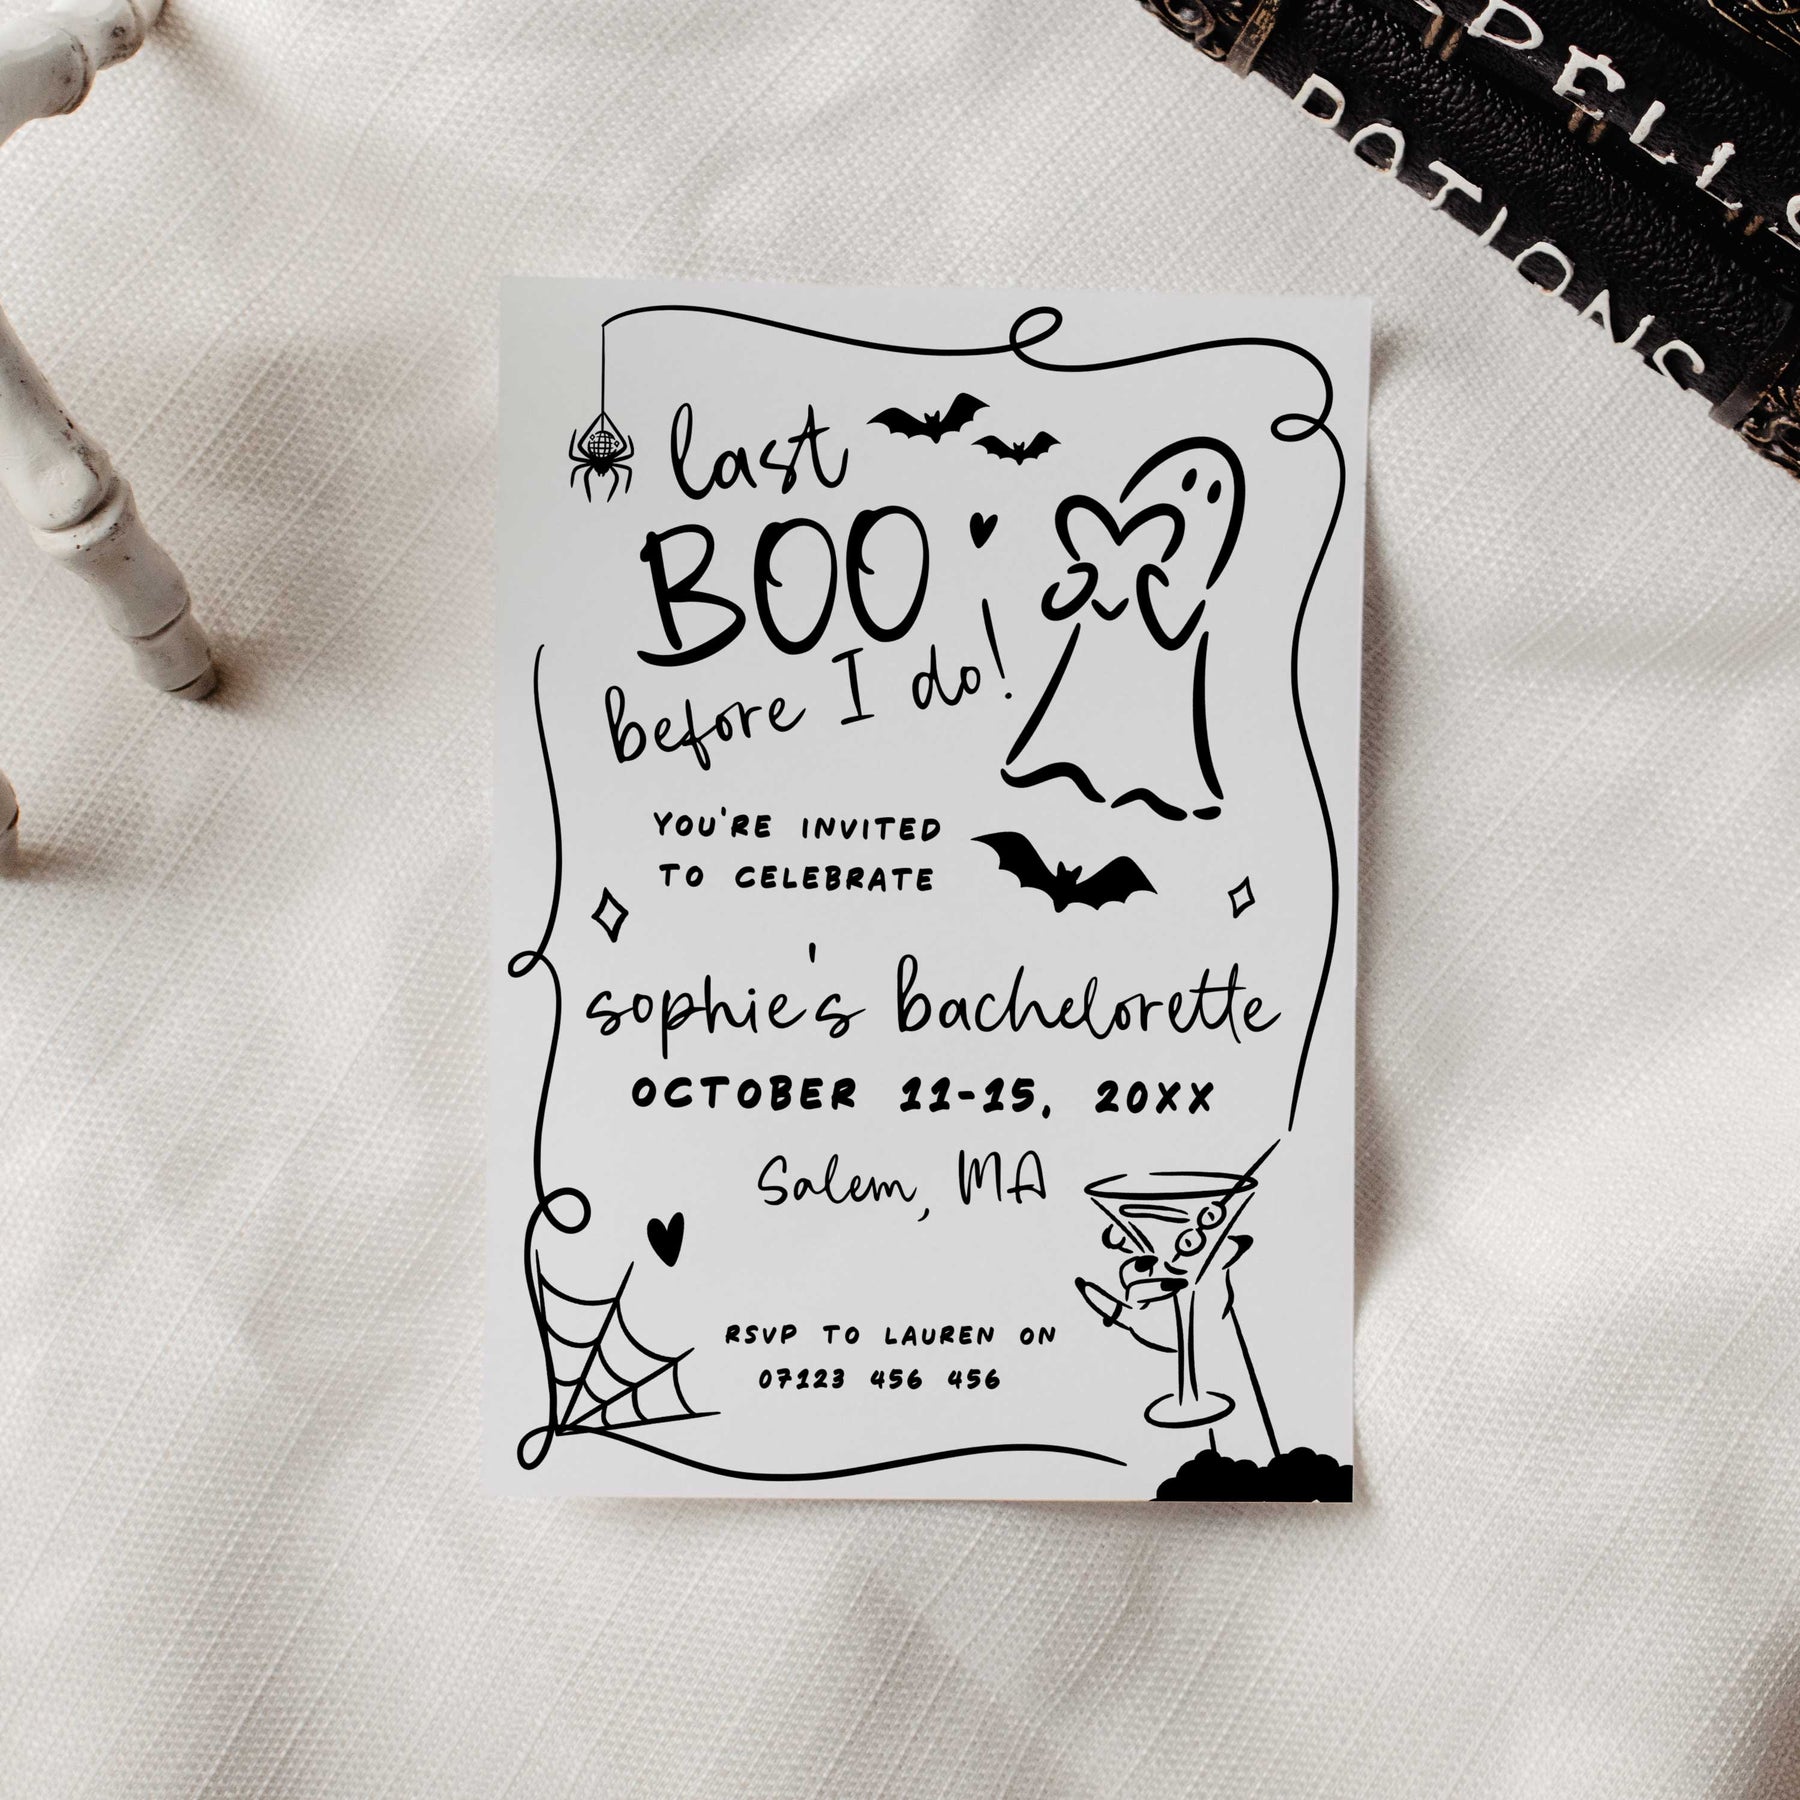 DELLS
POTIONS
last
BOO
before I do!
YOU'RE INVITED
TO CELEBRATE
sophie's bachelorette
OCTOBER 11-15, 20XX
Salem, MA
RSVP TO LAUREN ON
07123 456 456